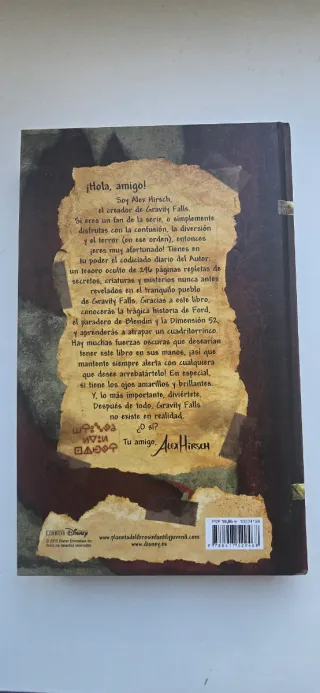 ¡Hola, amigo!
Soy Alex Hirsch,
el creador de Gravity Falls.
Si eres un fan de la serie, o simplemente
disfrutas con la confusión, la diversión
y el terror (en ese orden), entonces
¡eres muy afortunado! Tienes en
tu poder el codiciado diario del Autor:
un tesoro oculto de 296 páginas repletas de
secretos, criaturas y misterios nunca antes
revelados en el tranquilo pueblo
de Gravity Falls. Gracias a este libro,
conocerás la trágica historia de Ford,
el paradero de Blendin y la Dimensión 52,
y aprenderás a atrapar un cuadritorrinco.
Hay muchas fuerzas oscuras que desearían
tener este libro en sus manos, ¡así que
mantente siempre alerta con cualquiera
que desee arrebatártelo! En especial,
si tiene los ojos amarillos y brillantes.
Y, lo más importante, diviértete.
Después de todo, Gravity Falls
no existe en realidad.
¿O sí?
Tu amigo,
ALEX HIRSCH
Disney
www.planetadelibrosinfantilyjuvenil.com
www.disney.es
PVP